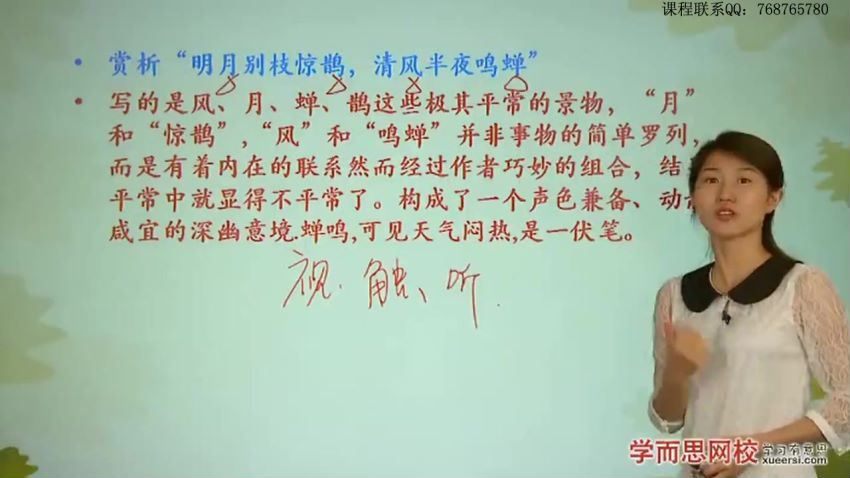 课程联系QQ：768765780
• 赏析“明月别枝惊鹊，清风半夜鸣蝉”
• 写的是风、月、蝉、鹊这些极其平常的景物，“月”
和“惊鹊”,“风”和“鸣蝉”并非事物的简单罗列，
而是有着内在的联系然而经过作者巧妙的组合，结
平常中就显得不平常了。构成了一个声色兼备、动
咸宜的深幽意境.蝉鸣,可见天气闷热,是一伏笔。
视. 触、听.
学而思网校
xueersi.com